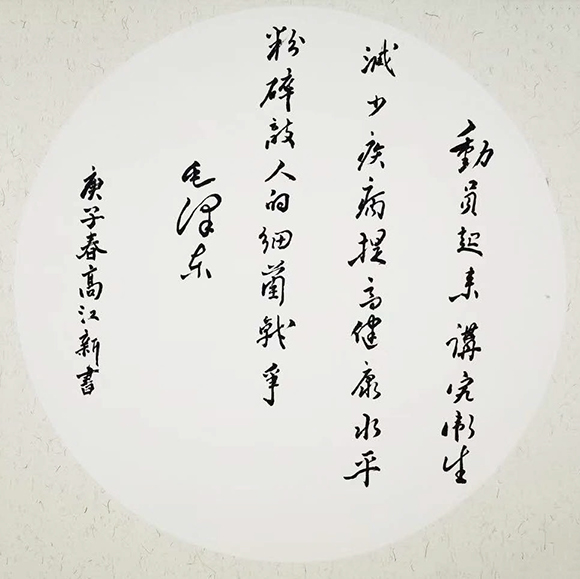 動員起来講究衛生
減少疾病提高健康水平
粉碎敌人的細菌戦争
毛泽东
庚子春高江新書